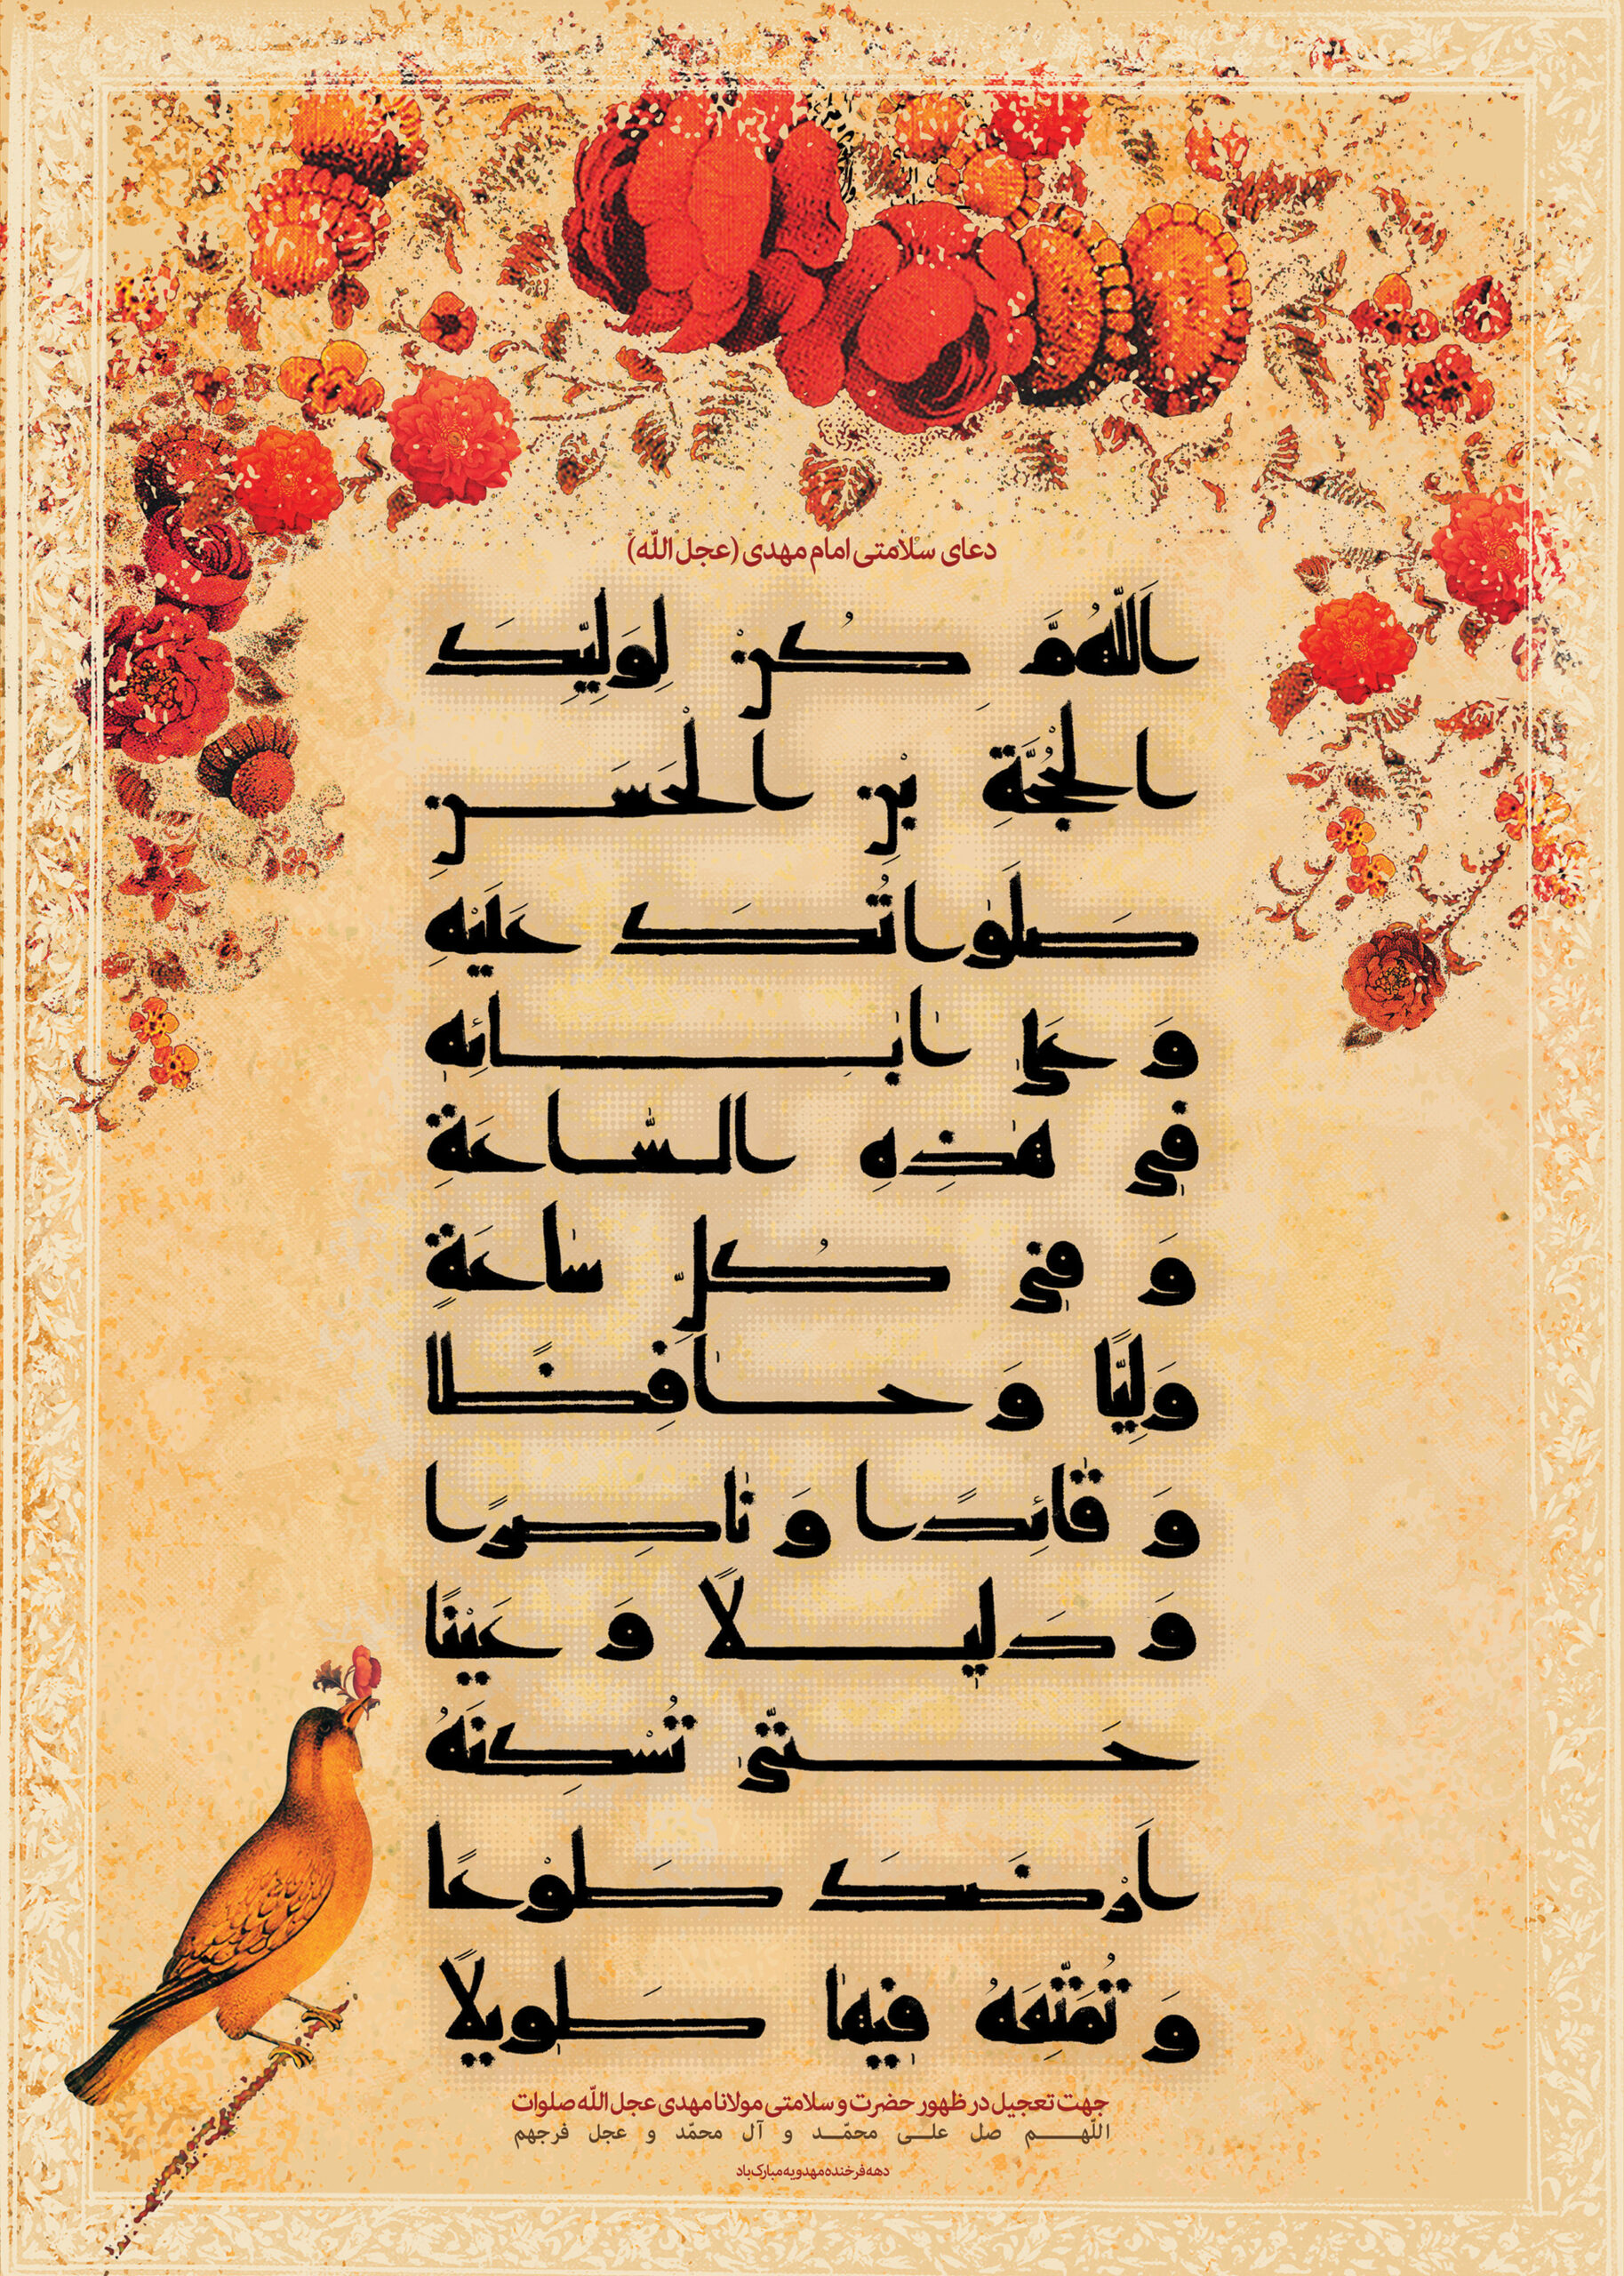 دعای سلامتی امام مهدی (عجل الله)
اَللّهُمَّ كُنْ لِوَلِيِّكَ
الْحُجَّةِ بْنِ الْحَسَنِ
صَلَواتُكَ عَلَيْهِ
وَ عَلى ابائِهِ
في هذِهِ السّاعَةِ
وَ في كُلِّ ساعَةٍ
وَلِيًّا وَ حافِظًا
وَ قائِدًا وَ ناصِرًا
وَ دَليلًا وَ عَيْنًا
حَتّى تُسْكِنَهُ
اَرْضَكَ طَوْعًا
وَ تُمَتِّعَهُ فيها طَويلًا
جهت تعجیل در ظهور حضرت و سلامتی مولانا مهدی عجل الله صلوات
اللّهم صل علی محمّد و آل محمّد و عجل فرجهم
دهه فرخنده مهدویه مبارک باد